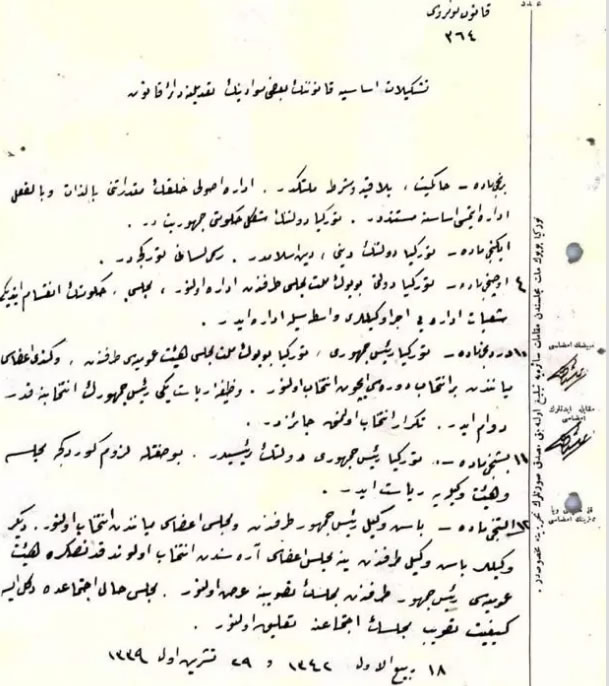 عدد
قانون نومروسى
٣٦٤
تشكيلات اساسيه قانوننك بعضى موادينك تعديلنه دائر قانون
برنجى ماده — حاكميت ، بلا قيد وشرط ملتكدر . اداره اصولى خلقك مقدراتنى بالذات وبالفعل
اداره ايتمسى اساسنه مستنددر . توركيا دولتنك شكل حكومتى جمهوريت در .
ايكنجى ماده — توركيا دولتنك دينى ، دين اسلامدر . رسمى لسانى توركجه در .
٤ اوچنجى ماده — توركيا دولتى بويوك ملت مجلسى طرفندن اداره اولنور ، مجلس ، حكومتك انقسام ايتديكى
شعبات اداره يى اجرا وكيللرى واسطه سيله اداره ايدر .
١٠ دردنجى ماده — توركيا رئيس جمهورى ، توركيا بويوك ملت مجلسى هيئت عموميه سى طرفندن ، وكندى اعضاسى
مياننده ن بر انتخاب دوره سى ايچون انتخاب اولنور . وظيفه رياست يكى رئيس جمهورك انتخابنه قدر
دوام ايدر . تكرار انتخاب اولنمق جائزدر .
١١ بشنجى ماده — توركيا رئيس جمهورى دولتك رئيسيدر . بو صفتله لزوم كوردكجه مجلسه
وهيئت وكيليه يه رياست ايدر .
١٢ آلتنجى ماده — باش وكيل رئيس جمهور طرفندن ومجلس اعضاسى مياننده ن انتخاب اولنور . ديكر
وكيللر باش وكيل طرفندن ينه مجلس اعضاسى آره سندن انتخاب اولوندقدنصكره هيئت
عموميه سى رئيس جمهور طرفندن مجلسك تصويبنه عرض اولنور . مجلس حال اجتماعده دكل ايسه
كيفيت تصويب مجلسك اجتماعنه تعليق اولنور .
١٨ ربيع الاول ١٣٤٢ و ٢٩ تشرين اول ١٣٣٩
توركيا بويوك ملت مجلسندن مقامات سائره يه تبليغ اولنه جق مصدق صورتلرك تحريرينه مخصوصدر .
مبيضك امضاسى
مقابله ايدنلرك
امضاسى